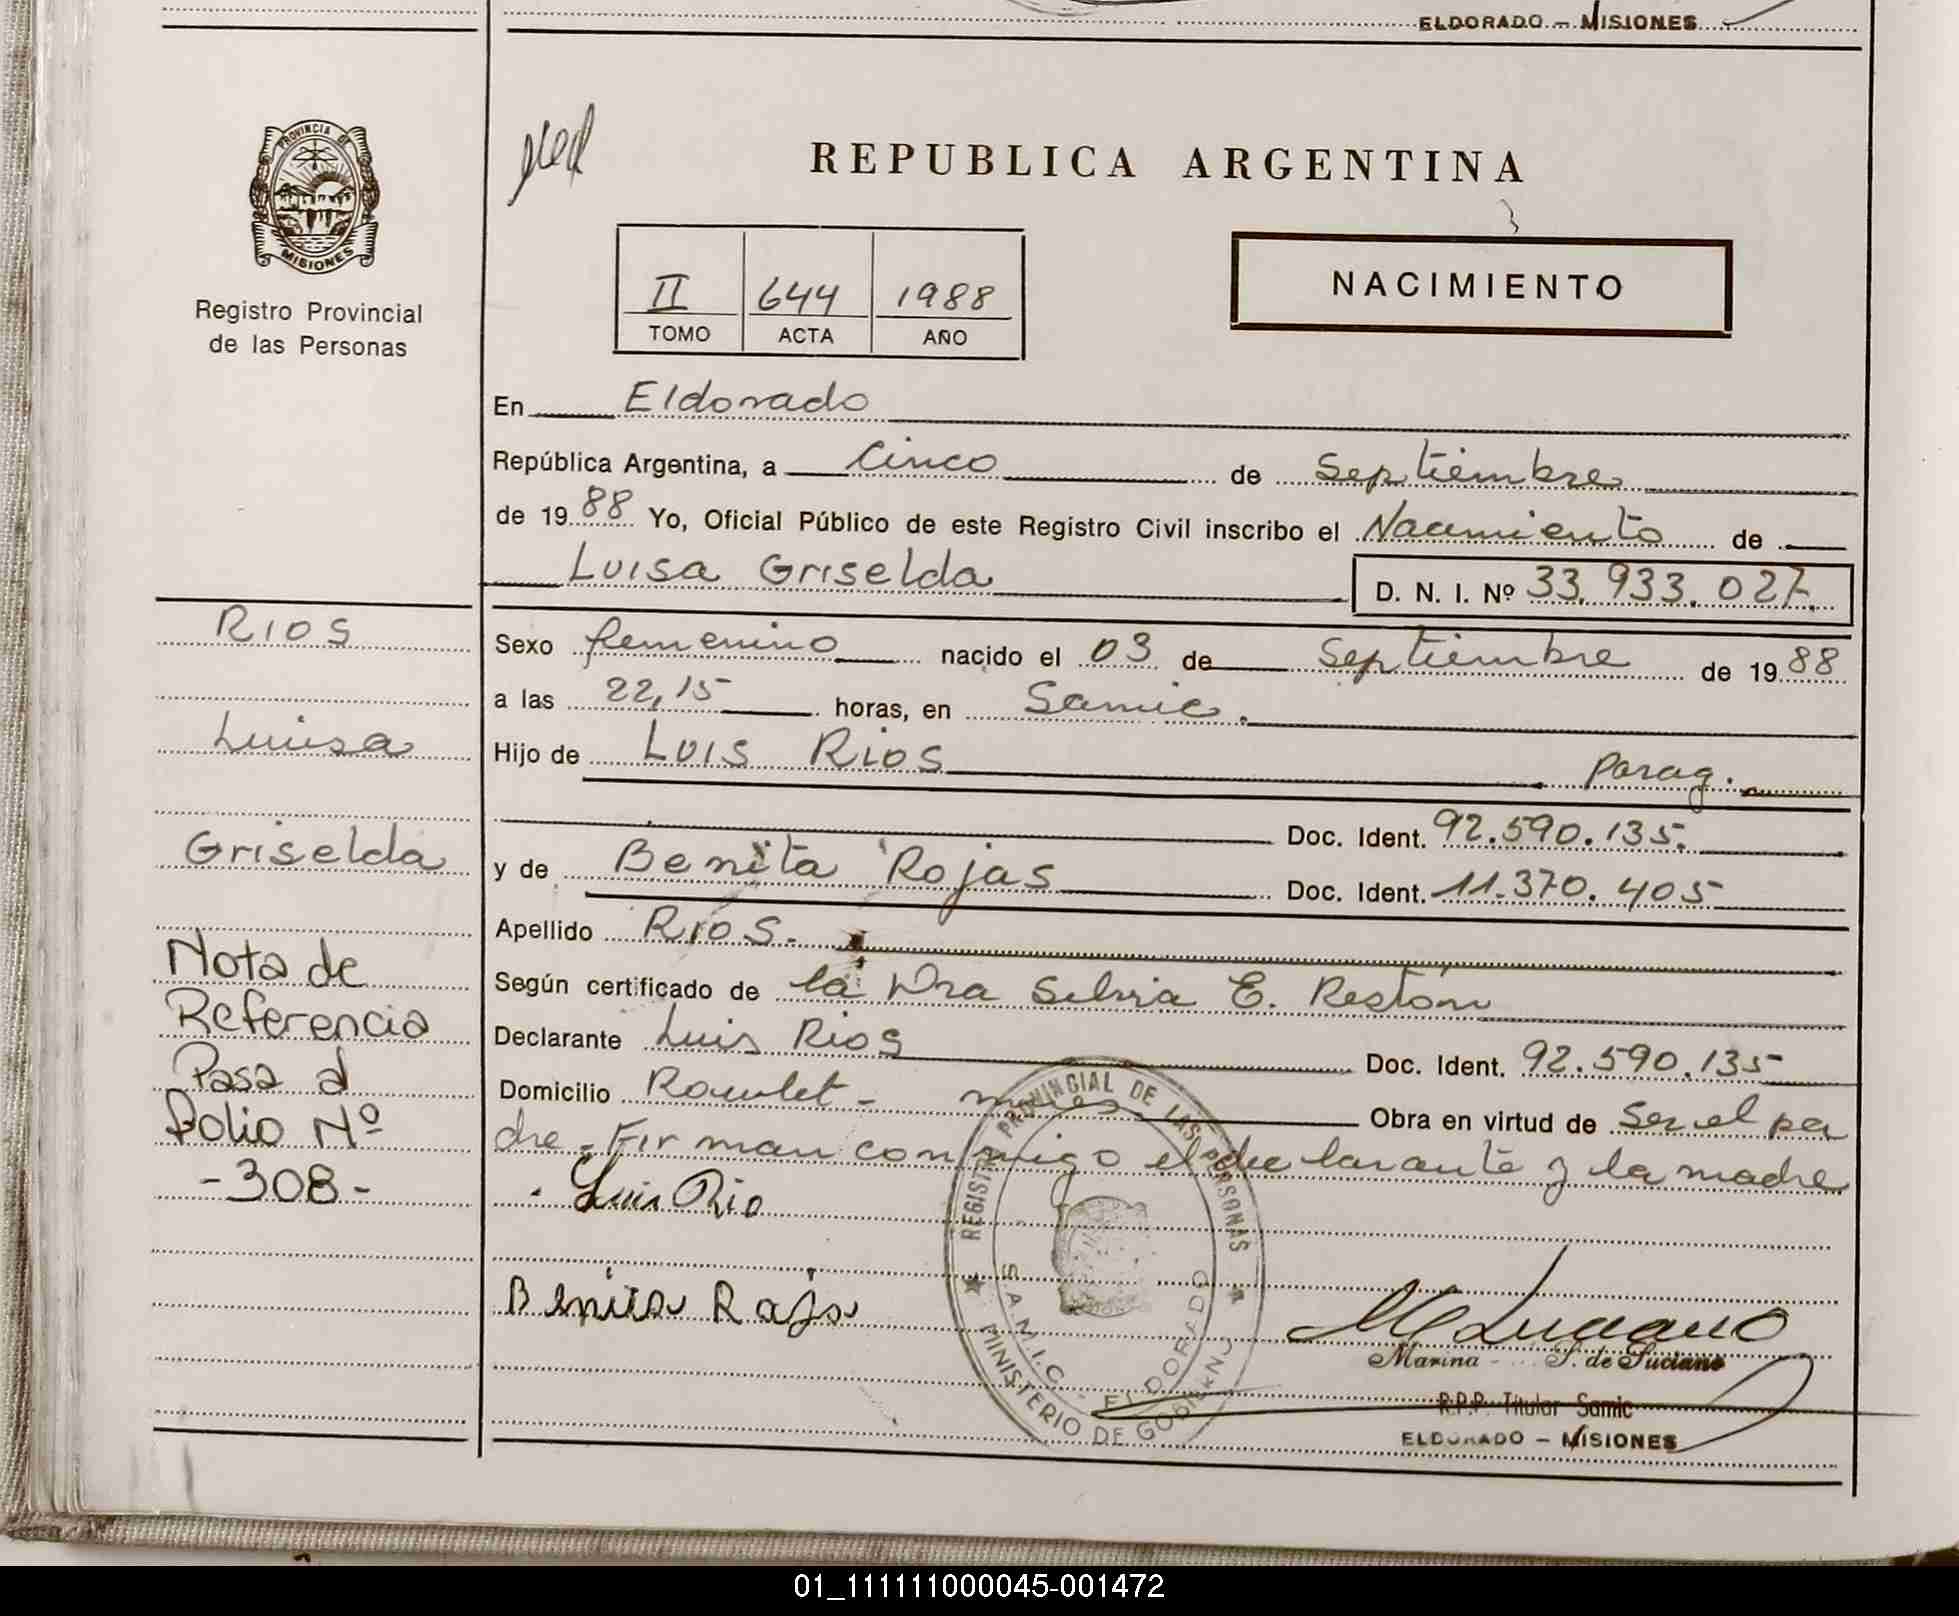 ELDORADO - MISIONES
PROVINCIA DE
MISIONES
Registro Provincial
de las Personas
REPUBLICA ARGENTINA
II 644 1988
TOMO ACTA AÑO
NACIMIENTO
En Eldorado
República Argentina, a Cinco de Septiembre
de 1988 Yo, Oficial Público de este Registro Civil inscribo el Nacimiento de
Luisa Griselda D. N. I. Nº 33.933.027.
Sexo femenino nacido el 03 de Septiembre de 1988
a las 22,15 horas, en Samic.
Hijo de Luis Rios Parag.
Doc. Ident. 92.590.135.
y de Benita Rojas Doc. Ident. 11.370.405
Apellido Ríos.
Según certificado de la Dra Silvia E. Restón
Declarante Luis Rios Doc. Ident. 92.590.135
Domicilio - Mnes. Obra en virtud de ser el pa
dre. Firman conmigo el declarante y la madre
Luis Rio
Benita Rojas
RIOS
Luisa
Griselda
Nota de
Referencia
Pasa al
folio Nº
-308-
REGISTRO PROVINCIAL DE LAS PERSONAS
S.A.M.I.C. - ELDORADO
MINISTERIO DE GOBIERNO
Marina S. de Luciano
R.P.P. Titular Samic
ELDORADO - MISIONES
01_111111000045-001472